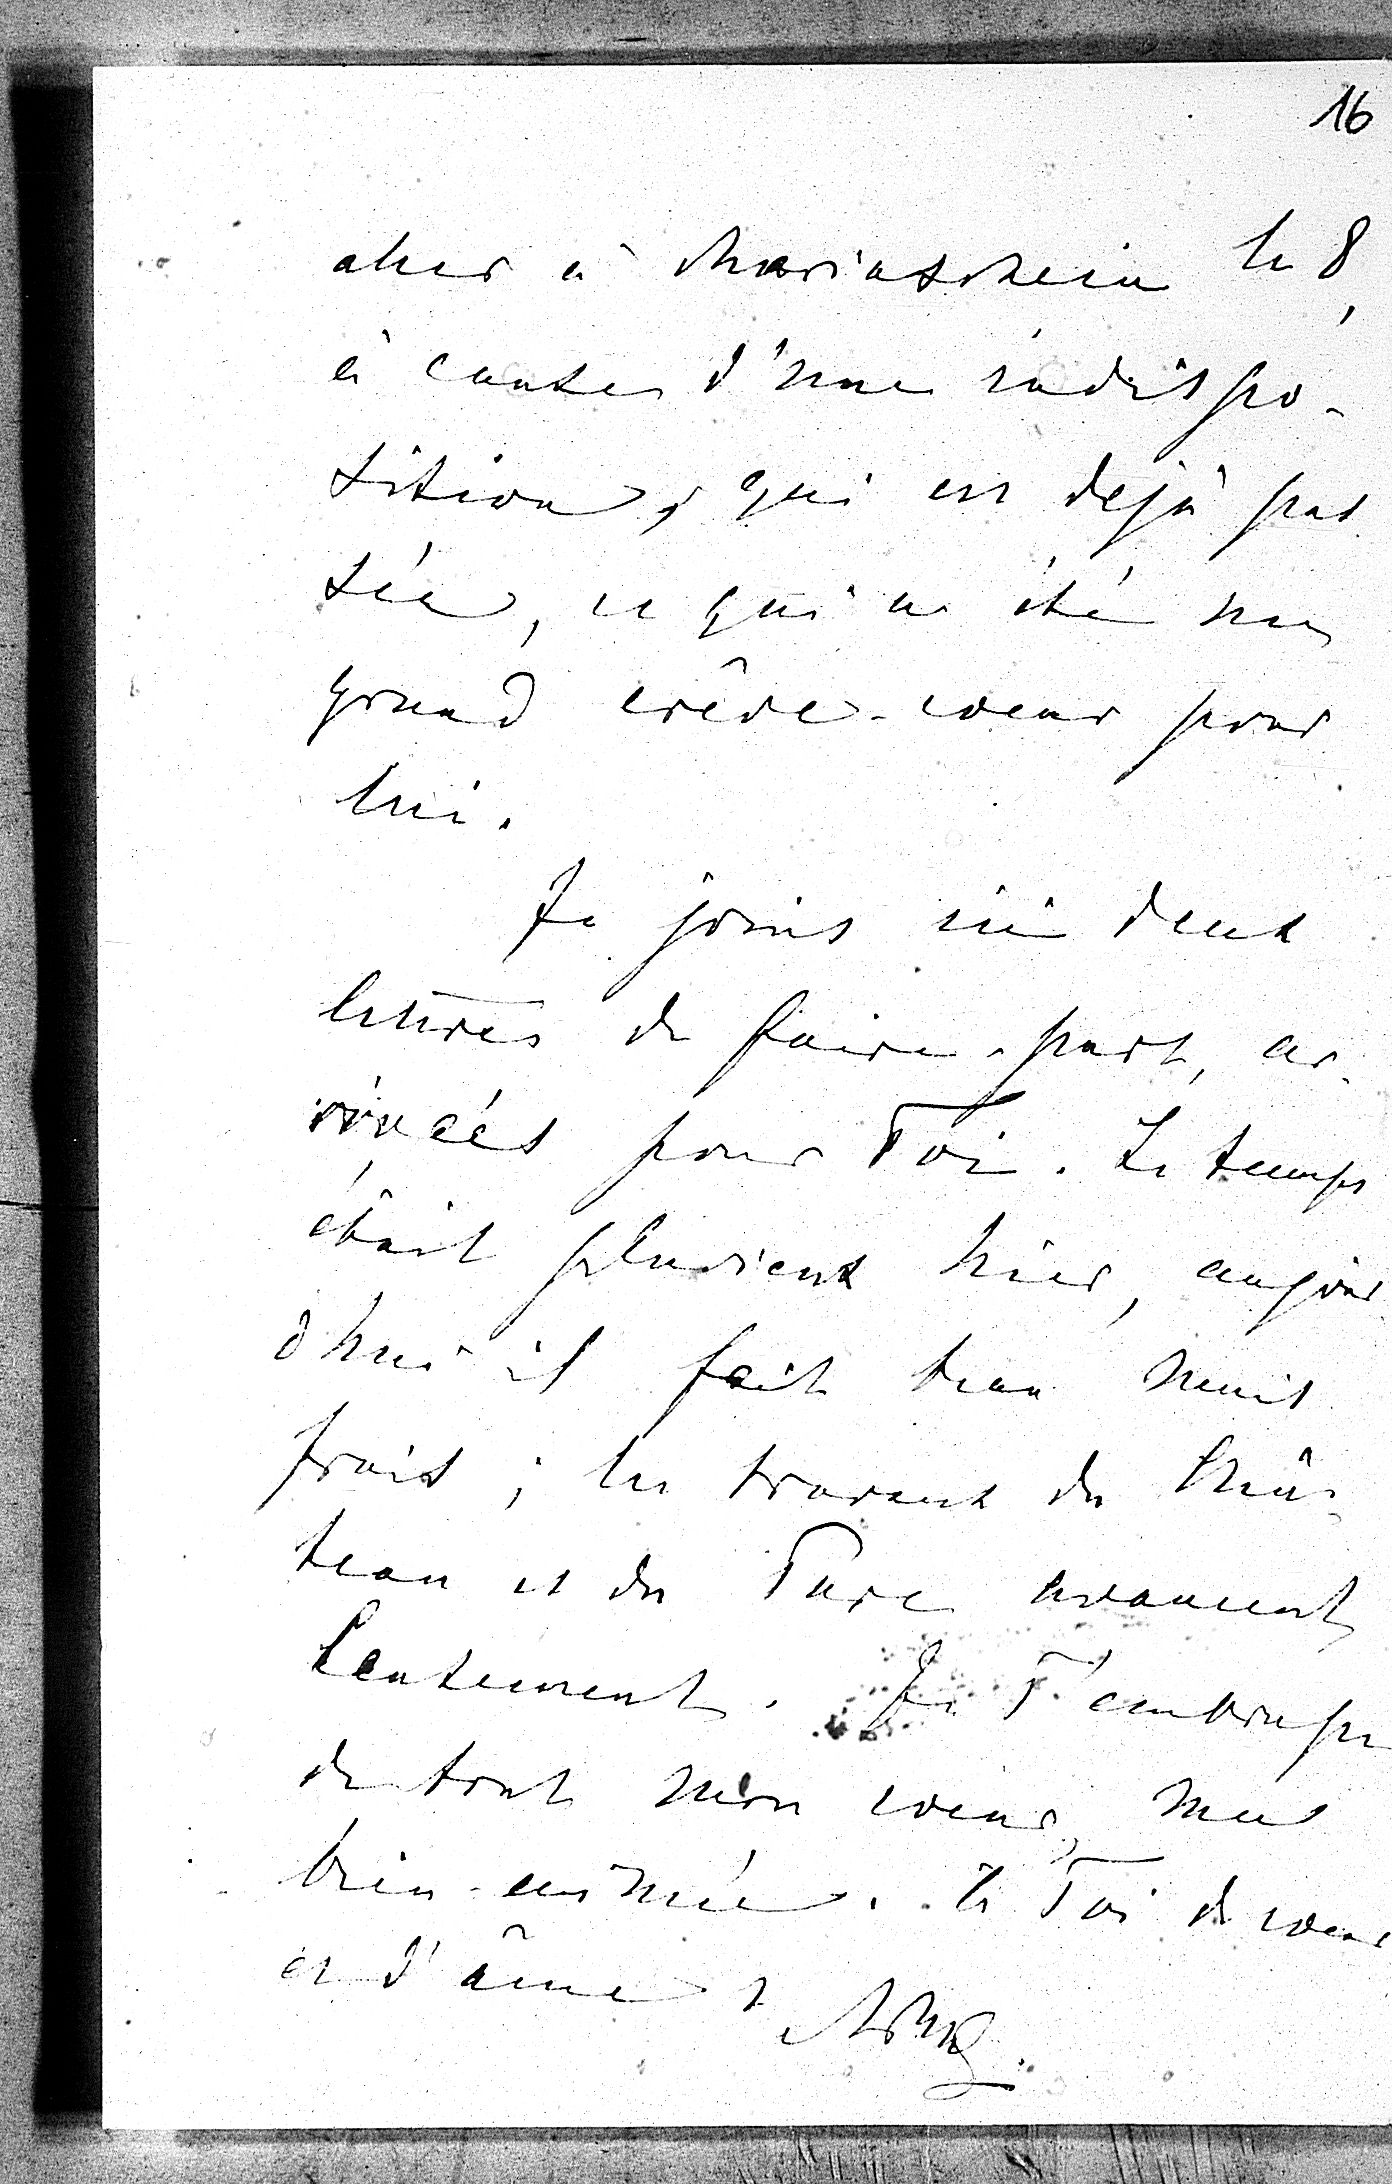 16
aller à Mariaschein le 8,
à cause d'une indispo-
sition, qui est dejà pas
sée, ce qui a été un
grand crêve-coeur pour
lui.
Je joins ici deux
lettres de faire-part, ar-
rivées pour Toi. Le temps
était pluvieux hier, aujour
dhui il fait beau mais
frais; les travaux du Châ-
teau et du Parc avancent
lentement. Je T'embrasse
de tout mon coeur, mes
bien-aimée. A Toi de coeur
et d'âme